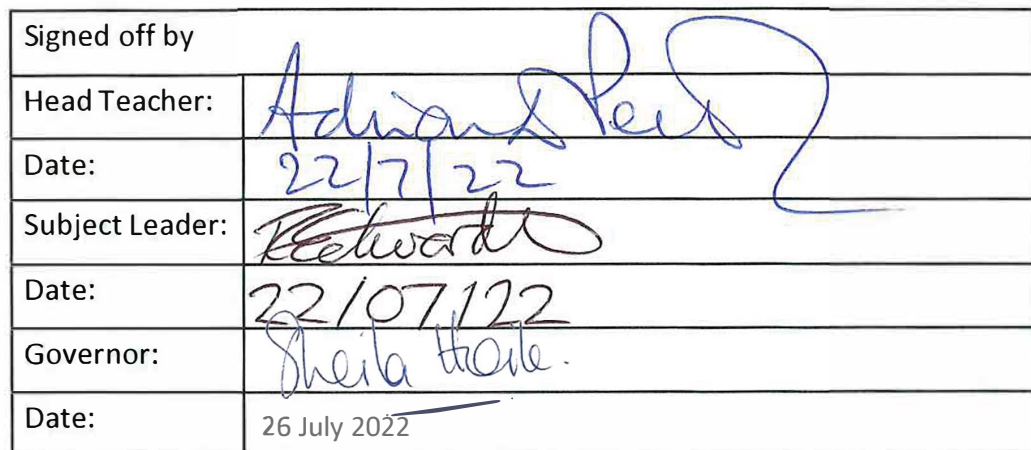 Signed off by
Head Teacher: Adrian
Date: 22/7/22
Subject Leader: Edwards
Date: 22/07/22
Governor: Sheila
Date: 26 July 2022